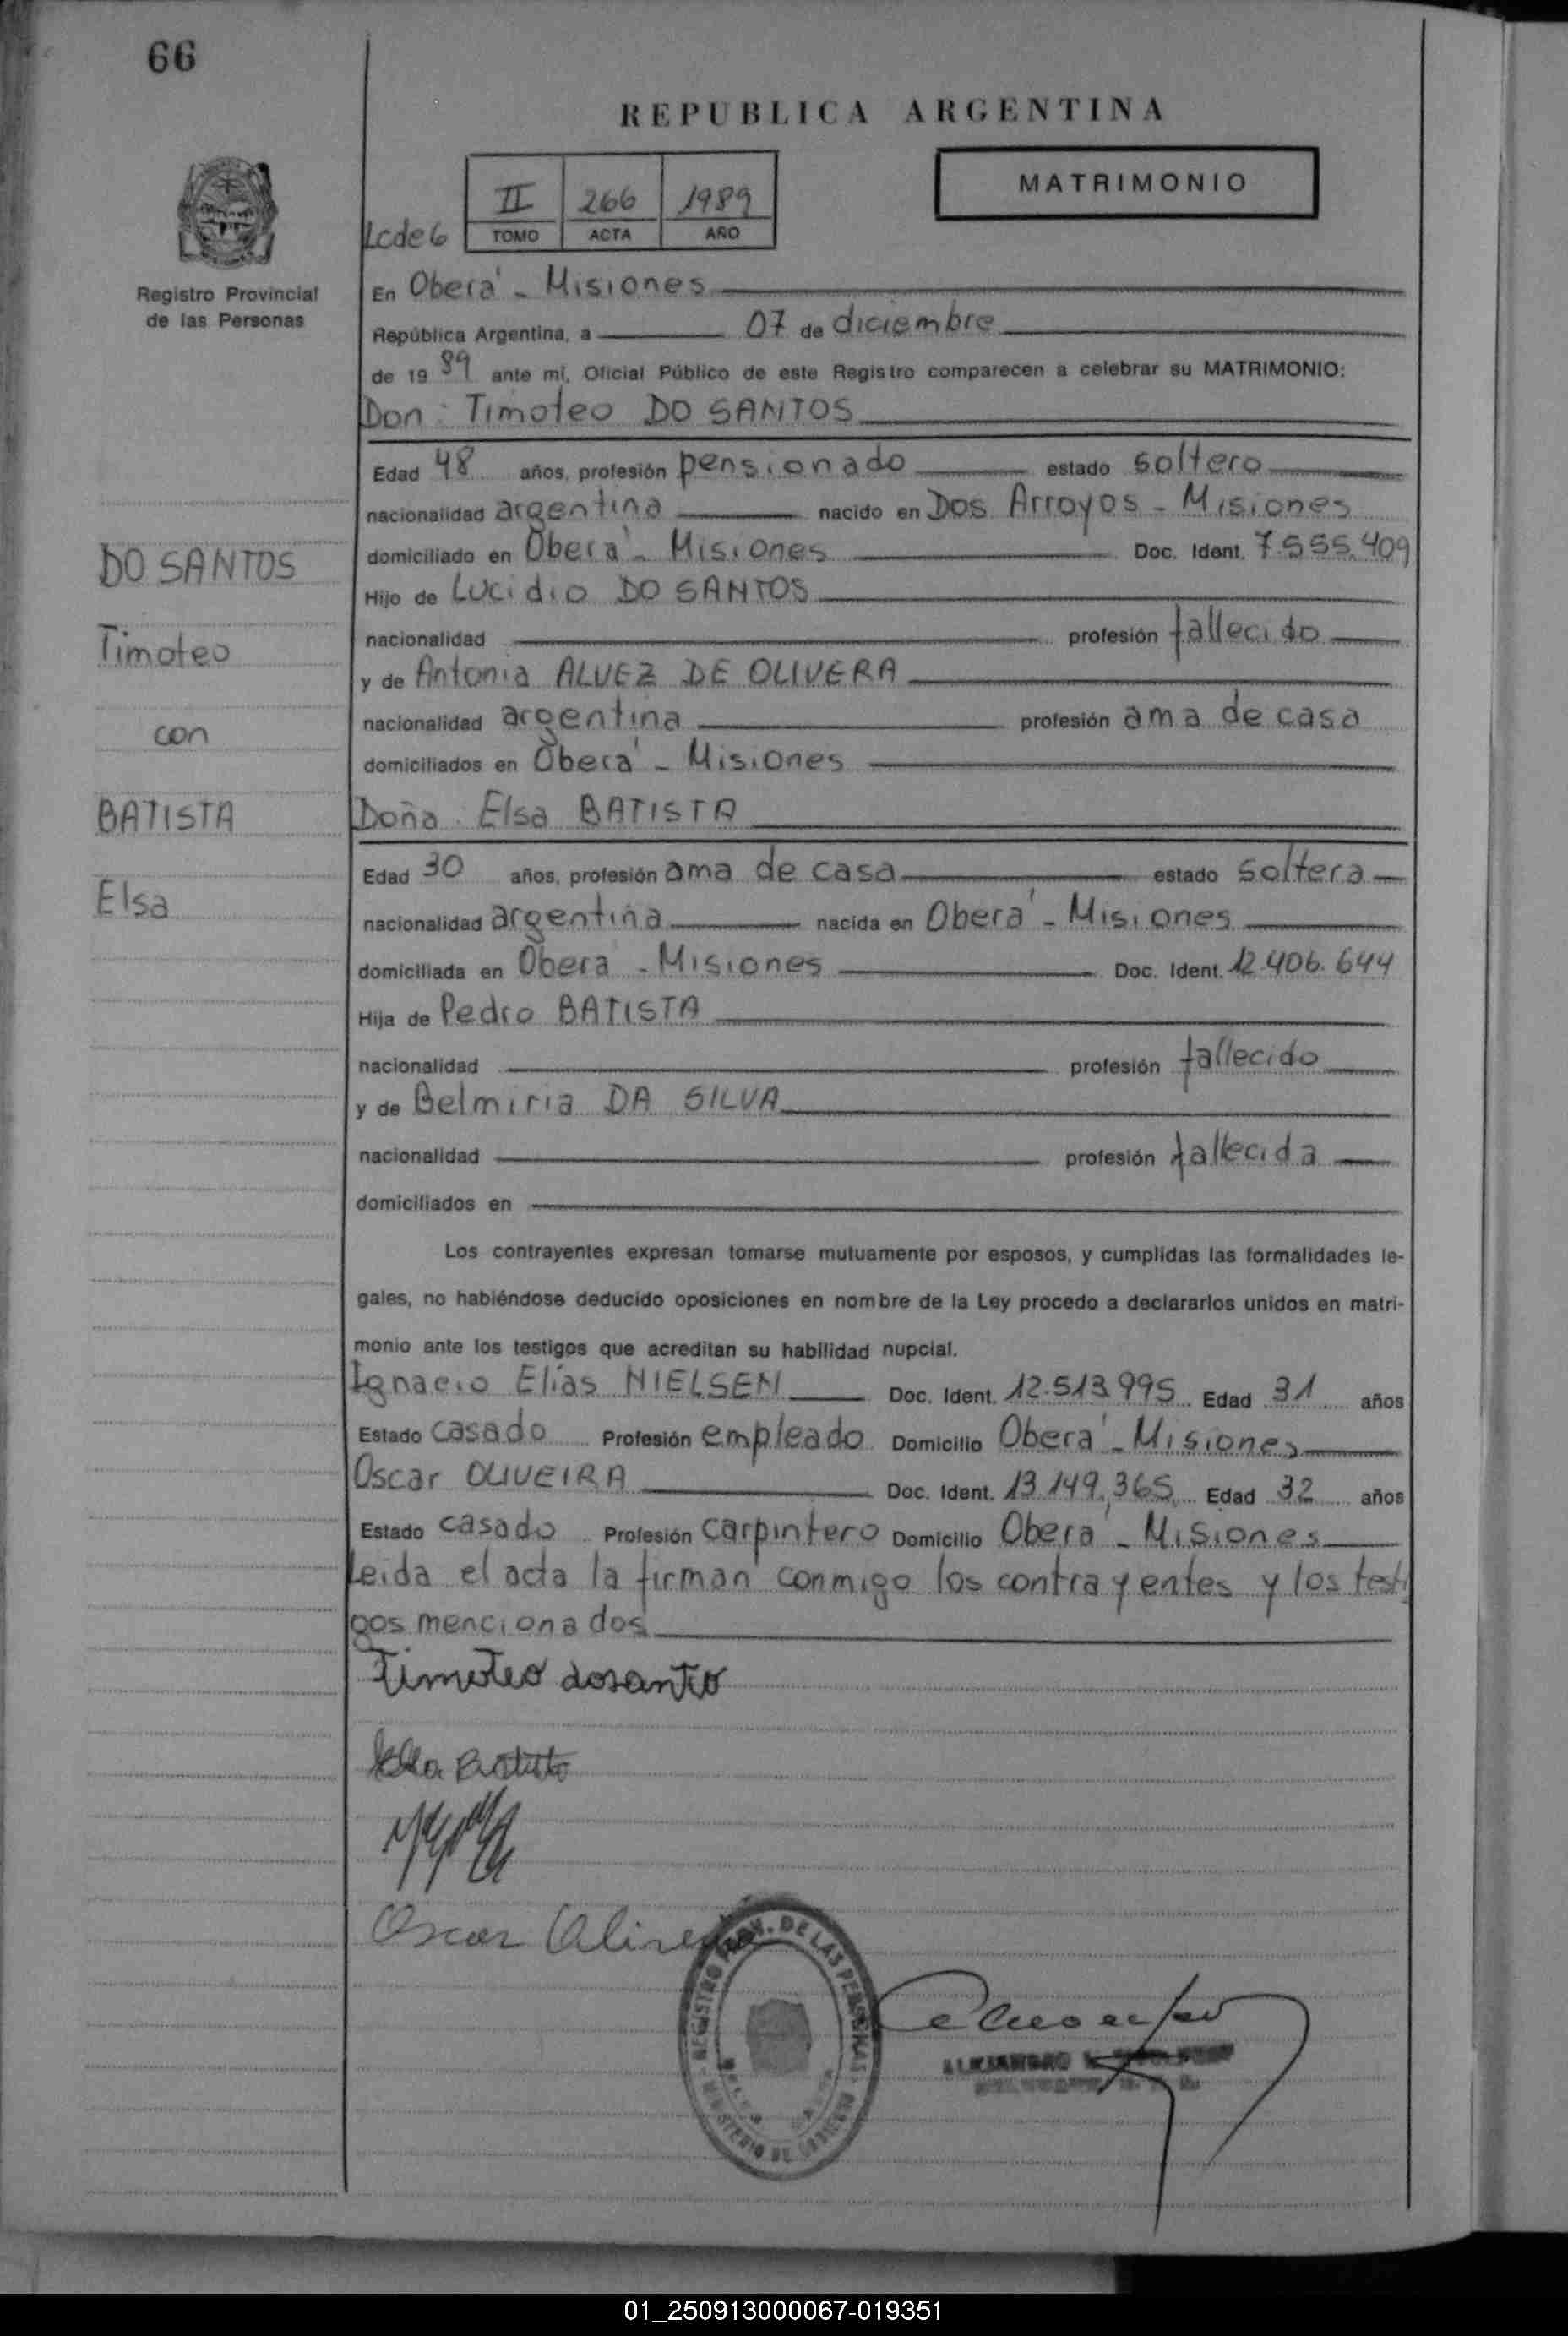 66
REPUBLICA ARGENTINA
II 266 1989
MATRIMONIO
Lcde6 TOMO ACTA AÑO
Registro Provincial
de las Personas
En Oberá - Misiones
República Argentina, a 07 de diciembre
de 19 89 ante mí, Oficial Público de este Registro comparecen a celebrar su MATRIMONIO:
Don: Timoteo DO SANTOS
Edad 48 años, profesión pensionado estado soltero
nacionalidad argentina nacido en Dos Arroyos - Misiones
domiciliado en Oberá - Misiones Doc. Ident. 7.555.409
DO SANTOS
Hijo de Lucidio DO SANTOS
nacionalidad profesión fallecido
Timoteo
y de Antonia ALVEZ DE OLIVERA
nacionalidad argentina profesión ama de casa
con
domiciliados en Oberá - Misiones
BATISTA
Doña Elsa BATISTA
Edad 30 años, profesión ama de casa estado soltera
Elsa
nacionalidad argentina nacida en Oberá - Misiones
domiciliada en Oberá - Misiones Doc. Ident. 12.406.644
Hija de Pedro BATISTA
nacionalidad profesión fallecido
y de Belmiria DA SILVA
nacionalidad profesión fallecida
domiciliados en
Los contrayentes expresan tomarse mutuamente por esposos, y cumplidas las formalidades le-
gales, no habiéndose deducido oposiciones en nombre de la Ley procedo a declararlos unidos en matri-
monio ante los testigos que acreditan su habilidad nupcial.
Ignacio Elías NIELSEN Doc. Ident. 12.513.995 Edad 31 años
Estado casado Profesión empleado Domicilio Oberá - Misiones
Oscar OLIVEIRA Doc. Ident. 13.149.365 Edad 32 años
Estado casado Profesión carpintero Domicilio Oberá - Misiones
Leida el acta la firman conmigo los contrayentes y los testi
gos mencionados
timoteo dosanto
Elsa Batista
Oscar
REGISTRO PROV. DE LAS PERSONAS
MINISTERIO DE GOBIERNO
ALEJANDRO
01_250913000067-019351